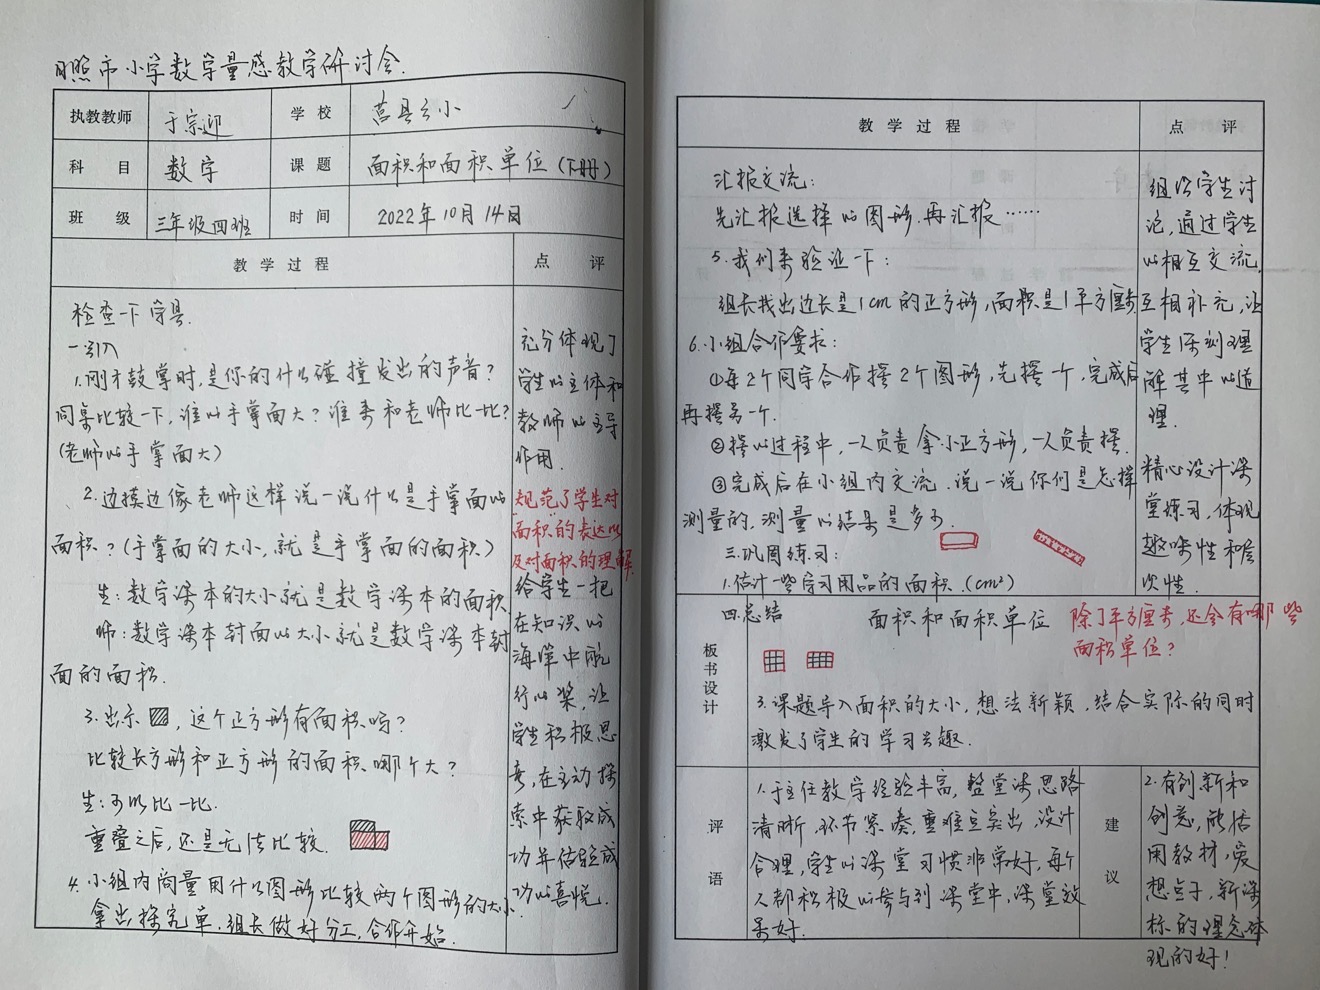 日照市小学数学量感教学研讨会.
执教教师 于宗迎 学校 莒县三小
科目 数学 课题 面积和面积单位(下册)
班级 三年级四班 时间 2022年10月14日
教学过程 点评
检查一下学具.
一.引入
1.刚才鼓掌时,是你的什么碰撞发出的声音?
同桌比较一下,谁的手掌面大?谁来和老师比一比?
(老师的手掌面大)
2.边摸边像老师这样说一说什么是手掌面的
面积?(手掌面的大小,就是手掌面的面积)
生:数学课本的大小就是数学课本的面积.
师:数学课本封面的大小就是数学课本封
面的面积.
3.出示,这个正方形有面积吗?
比较长方形和正方形的面积哪个大?
生:可以比一比.
重叠之后,还是无法比较.
4.小组内商量用什么图形比较两个图形的大小.
拿出探究单.组长做好分工,合作开始.
充分体现了
学生的主体和
教师的主导
作用.
规范了学生对
面积的表达以
及对面积的理解.
给学生一把
在知识的
海洋中航
行的桨,让
学生积极思
考,在主动探
索中获取成
功并体验成
功的喜悦.
教学过程 点评
汇报交流:
先汇报选择的图形.再汇报……
5.我们来验证一下:
组长找出边长是1cm的正方形,面积是1平方厘米.
6.小组合作要求:
①每2个同学合作摆2个图形,先摆一个,完成后
再摆另一个.
②摆的过程中,一人负责拿小正方形,一人负责摆.
③完成后在小组内交流.说一说你们是怎样
测量的,测量的结果是多少.
三.巩固练习:
1.估计一些学习用品的面积.(cm²)
组织学生讨
论,通过学生
的相互交流,
互相补充,让
学生深刻理
解其中的道
理.
精心设计课
堂练习,体现
趣味性和层
次性.
板书设计
四.总结 面积和面积单位 除了平方厘米,还会有哪些
面积单位?
3.课题导入面积的大小,想法新颖,结合实际的同时
激发了学生的学习兴趣.
评语
1.于主任教学经验丰富,整堂课思路
清晰,环节紧凑,重难点突出,设计
合理,学生的课堂习惯非常好,每个
人都积极的参与到课堂中,课堂效
果好.
建议
2.有创新和
创意,敢括
用教材,爱
想点子,新课
标的理念体
现的好!